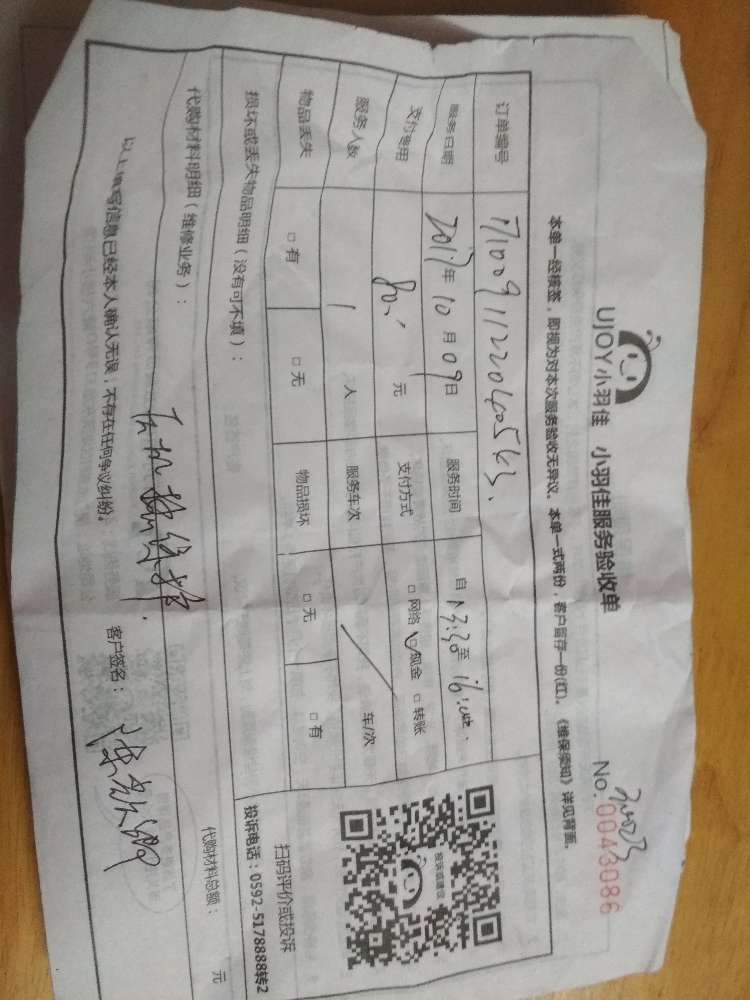 UJOY小羽佳 小羽佳服务验收单
No. 0043086
本单一经核签，即视为对本次服务验收无异议。本单一式两份，客户留存一份(红)。《维保须知》详见背面。
订单编号
服务日期 2017年 10 月 09日 服务时间 自 13:30 至
支付费用 80 元 支付方式 □网络 ☑现金 □转账
服务人数 1 人 服务车次 / 车/次
物品丢失 □有 □无 物品损坏 □无 □有
损坏或丢失物品明细（没有可不填）：
投诉或建议
扫码评价或投诉
投诉电话：0592-5178888转2
代购材料明细（维修业务）： 代购材料总额： 元
以上填写信息已经本人确认无误，不存在任何争议纠纷。 客户签名：